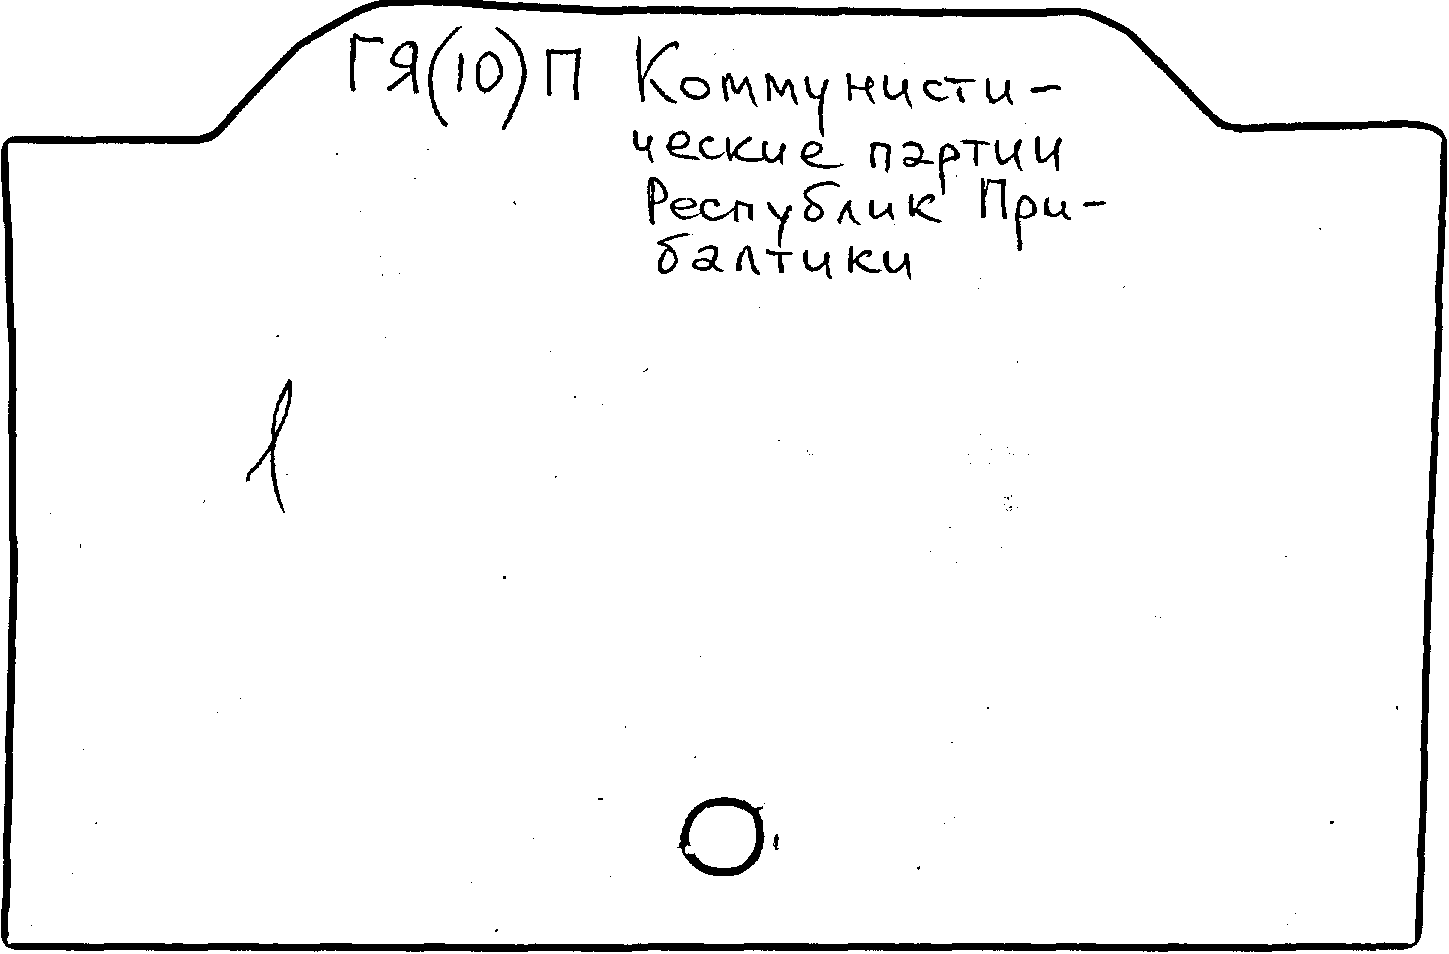 ГЯ(10)П Коммунисти-
ческие партии
Республик При-
балтики
1